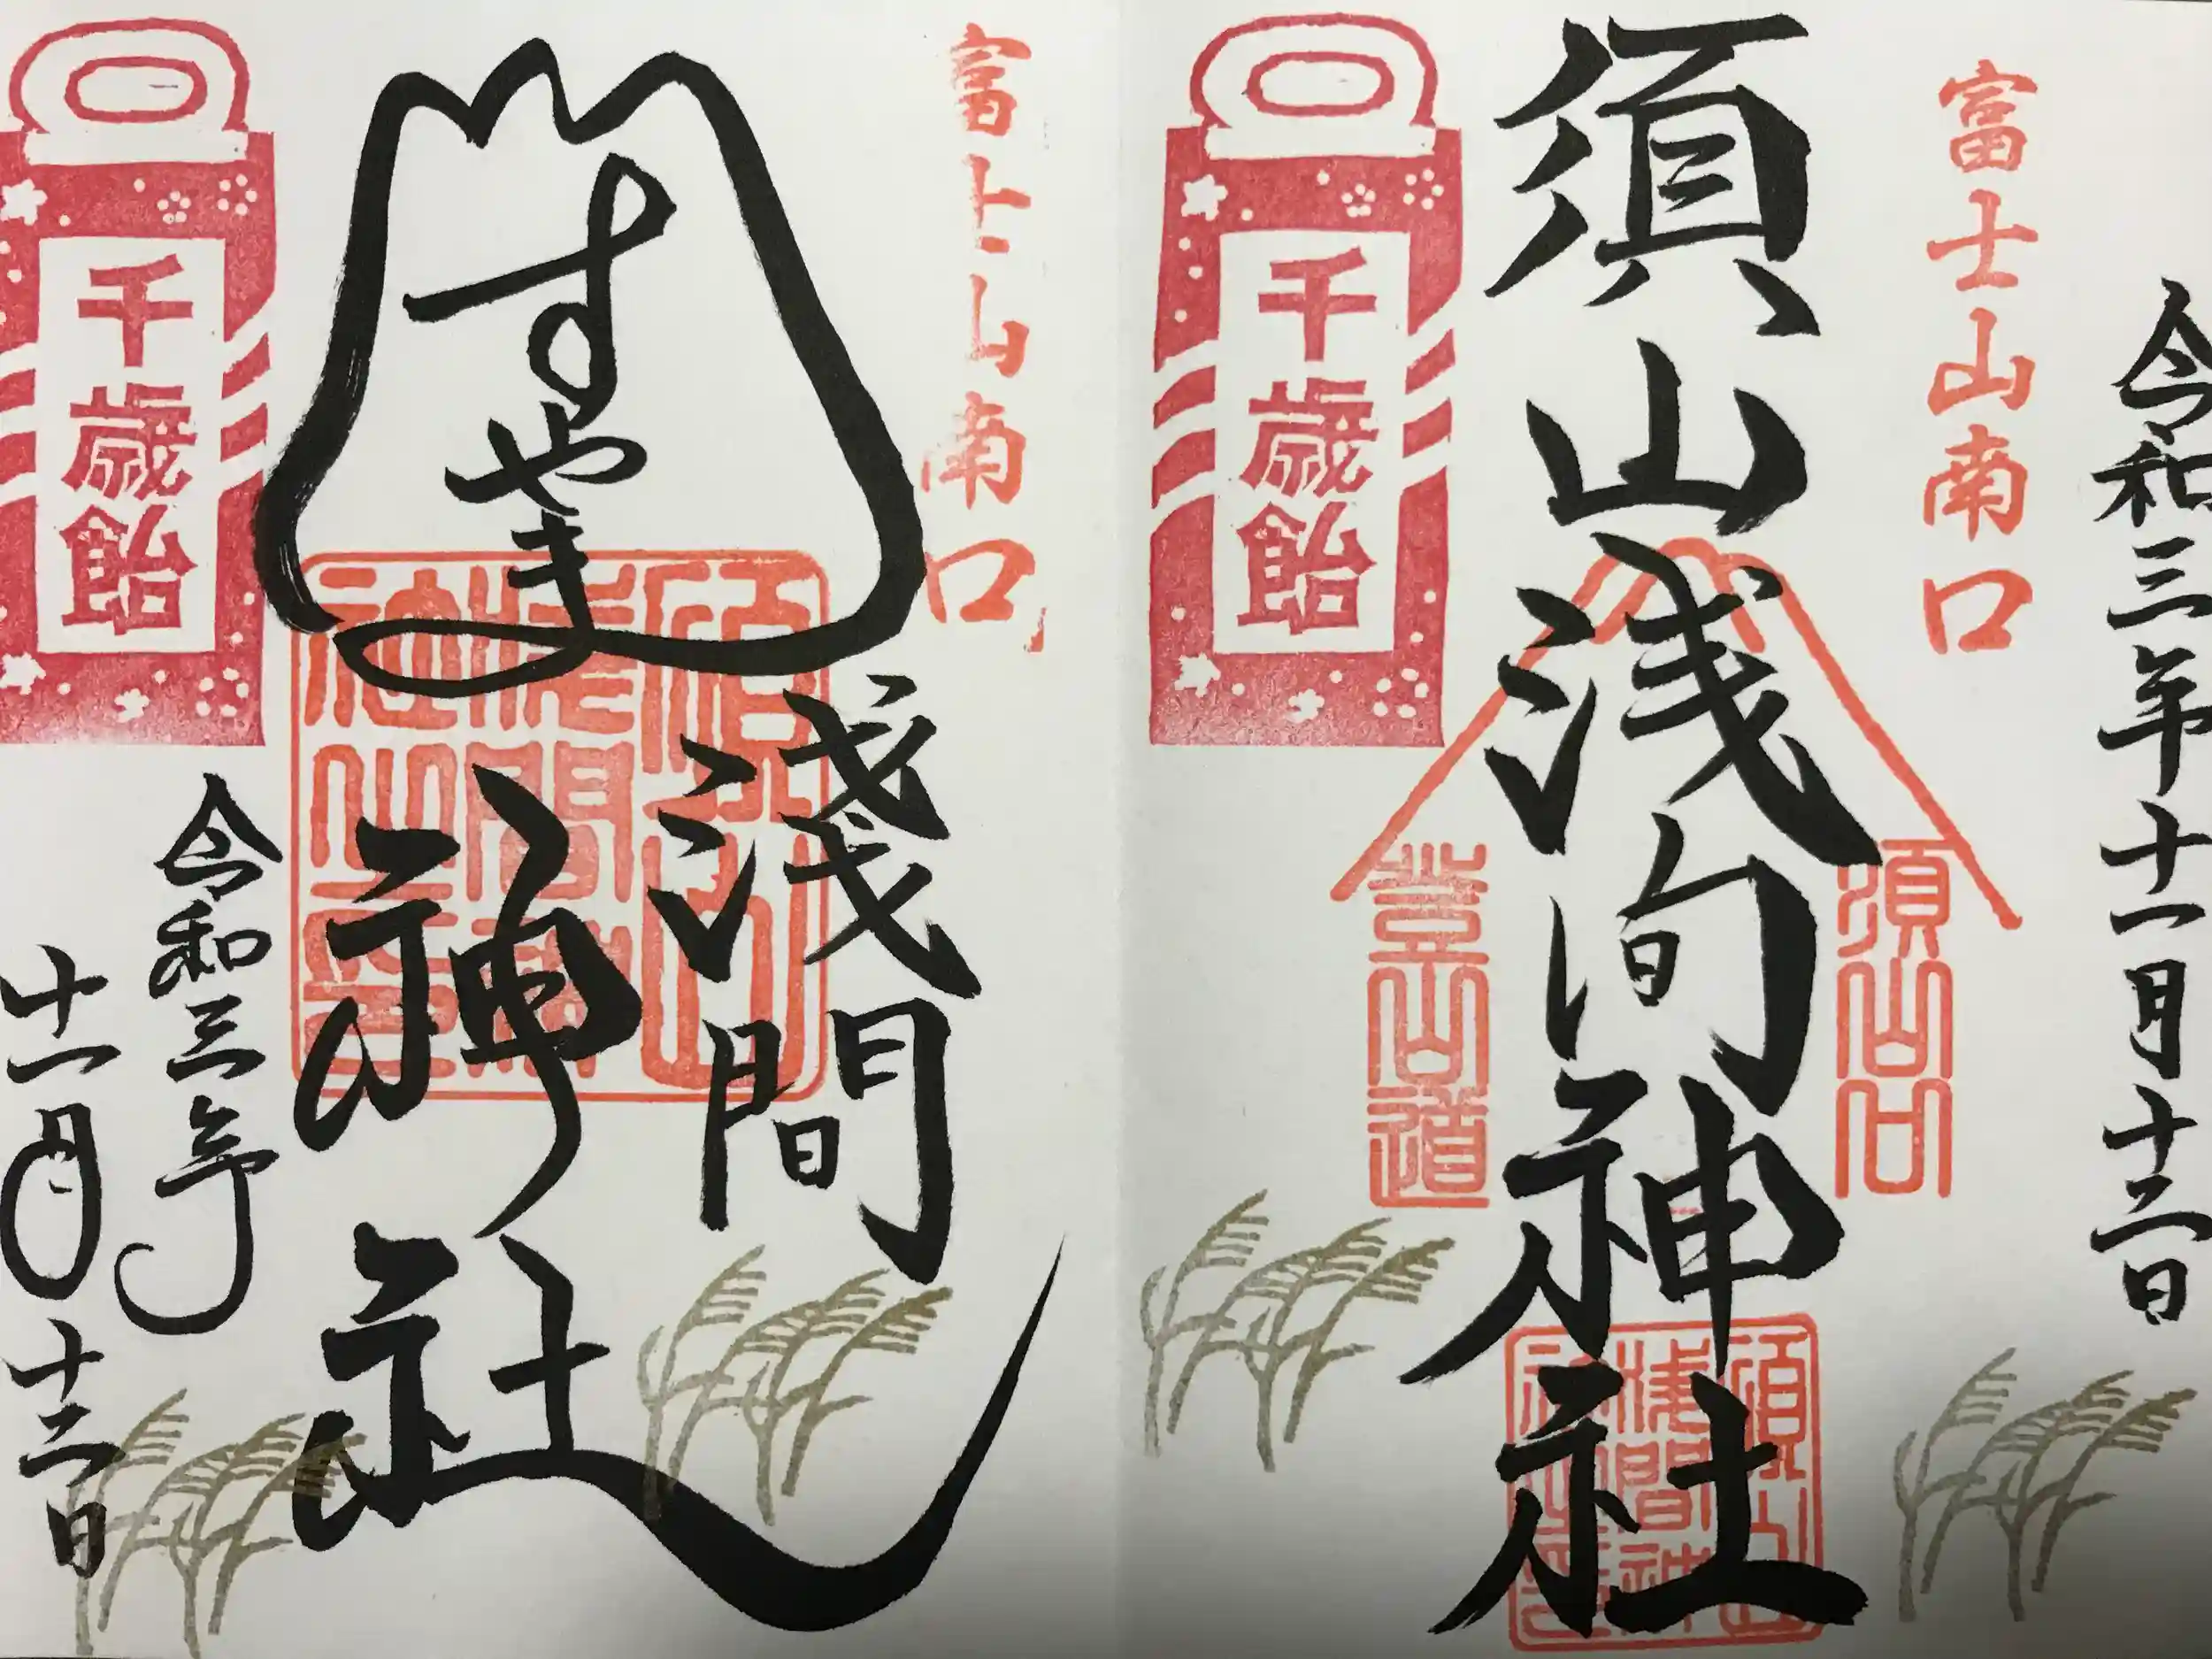 令和三年十一月十二日
富士山南口
須山浅间神社
須山口
登山道
須山
浅間神
社之印
千歳飴
富士山南口
すやま
淺間
神社
須山
浅間神
社之印
千歳飴
令和三年
十一月十二日